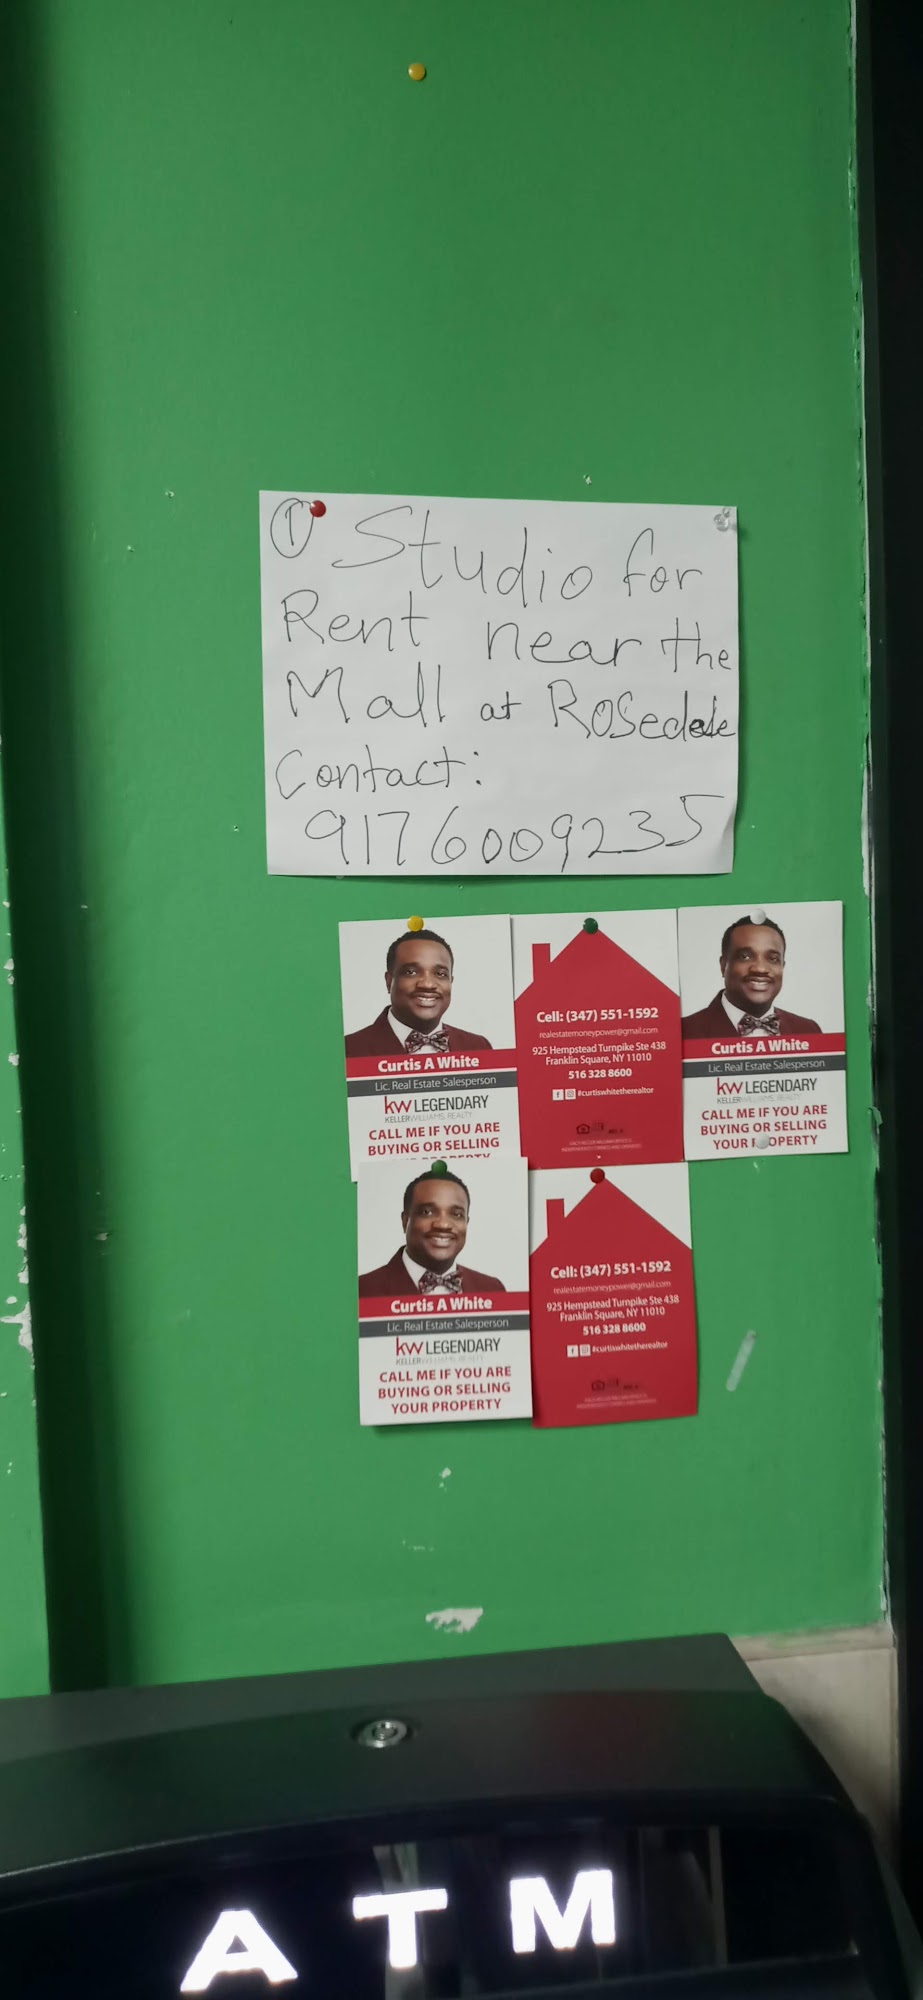 ① Studio for
Rent near the
Mall at Rosedale
Contact:
9176009235
Curtis A White
Lic. Real Estate Salesperson
kw LEGENDARY
KELLERWILLIAMS. REALTY
CALL ME IF YOU ARE
BUYING OR SELLING
Cell: (347) 551-1592
realestatemoneypower@gmail.com
925 Hempstead Turnpike Ste 438
Franklin Square, NY 11010
516 328 8600
#curtiswhitetherealtor
Curtis A White
Lic. Real Estate Salesperson
kw LEGENDARY
KELLERWILLIAMS. REALTY
CALL ME IF YOU ARE
BUYING OR SELLING
YOUR PROPERTY
Curtis A White
Lic. Real Estate Salesperson
kw LEGENDARY
KELLERWILLIAMS. REALTY
CALL ME IF YOU ARE
BUYING OR SELLING
YOUR PROPERTY
Cell: (347) 551-1592
realestatemoneypower@gmail.com
925 Hempstead Turnpike Ste 438
Franklin Square, NY 11010
516 328 8600
#curtiswhitetherealtor
ATM